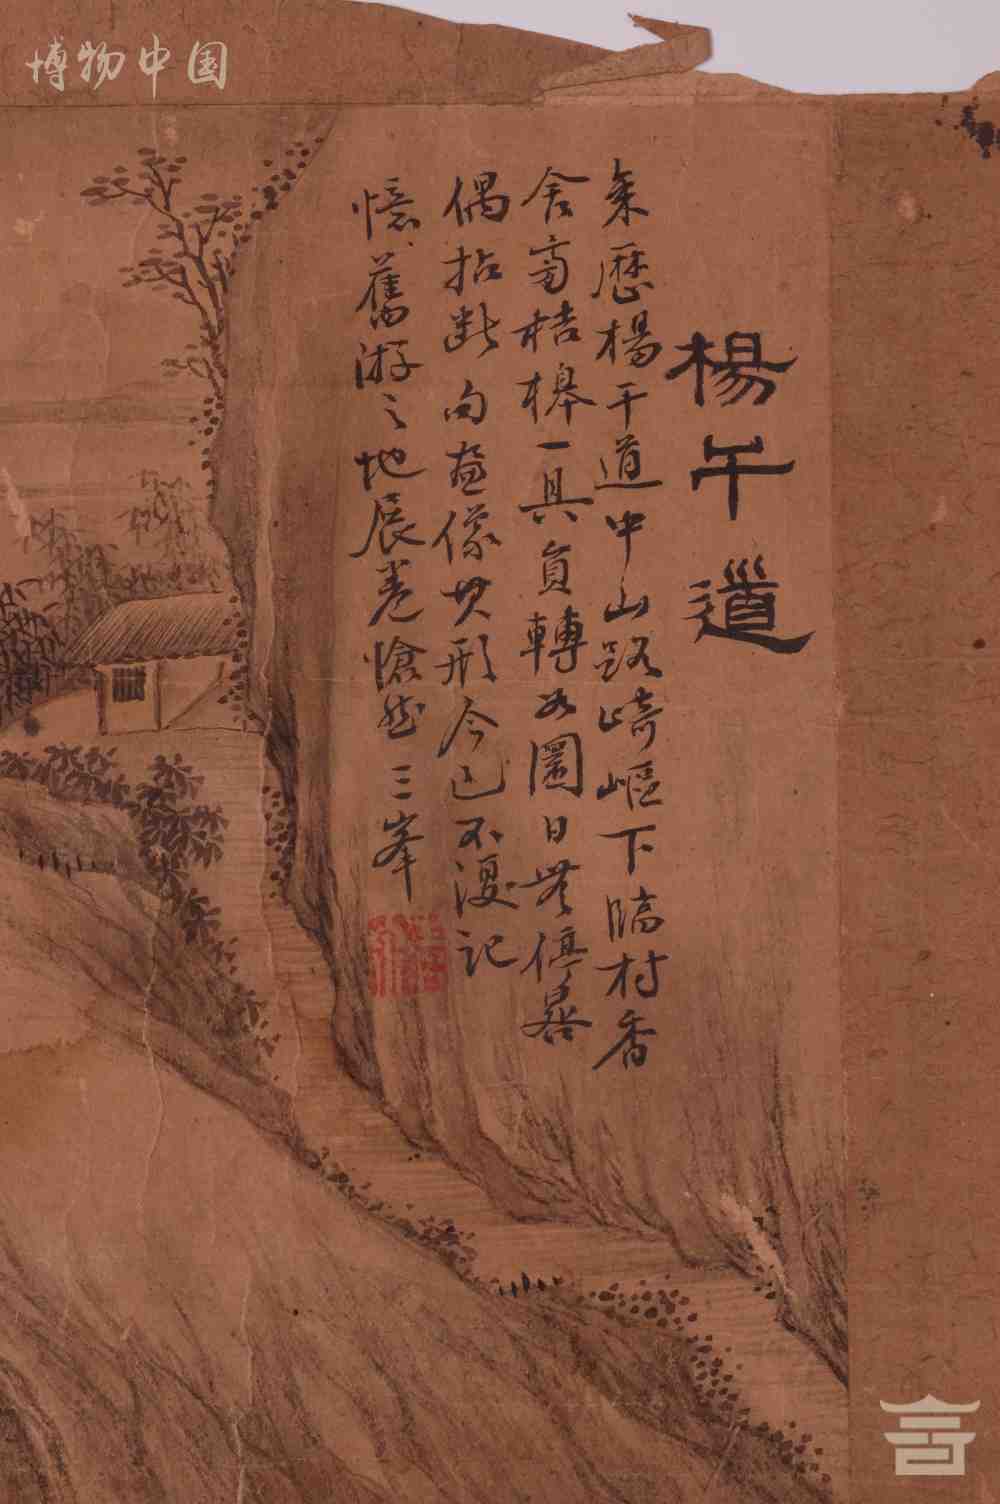 博物中国
楊干道
來歷楊干道中山路崎嶇下臨村香
舍旁桔槔一具負轉如圜日無停晷
偶拈斷句畫像其形今已不復記
憶舊游之地展卷愴然三峯